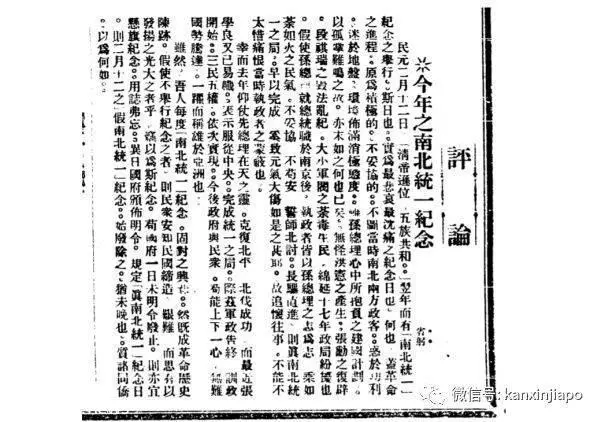 評論
※今年之南北統一紀念
省躬
民元二月十二日。「清帝遜位。五族共和。」翌年而有「南北統一」
紀念之舉行。斯日也。實爲最悲哀最沈痛之紀念日也。何也。蓋革命
之進程。原爲積極的。不妥協的。不圖當時南北兩方政客。惑於功利
。迷於地盤。環境佈滿消極態度。雖孫總理心中所抱負之建國計劃。
以孤掌難鳴之故。亦末如之何也已矣。無怪洪憲之產生。張勳之復辟
。段祺瑞之毀法亂紀。大小軍閥之荼毒生民。綿延十七年政局紛擾也
。假使孫總理就總統職於南京後。執政者皆以孫總理之志爲志。乘如
荼如火之民氣。不妥協。不苟安。誓師北討。長驅直進。則眞南北統
一之局。早以完成。奚致元氣大傷如是之甚耶。故追懷往事。不能不
太惜痛恨當時執政者之蒙蔽也。
幸而去年仰仗先總理在天之靈。克復北平。北伐成功。而最近張
學良又已易幟。表示服從中央。完成統一之局。際茲軍政告終。訓政
開始。三民五權。依次實現。今後政府與民衆。苟能上下一心。無難
國勢騰達。一躍而稱雄於亞洲也。
雖然。吾人每度「南北統一」紀念。固對之興悲。然既成革命歷史
陳跡。假使不舉行紀念之者。則民衆安知民國締造艱難。而思有以
發揚之光大之者乎。爲斯紀念。苟國府一日未明令廢止。則亦宜
懸旗紀念。用誌弗忘。異日國府頒佈明令。規定「眞南北統一」紀念日
。則二月十二之「假南北統一」紀念。始廢除之。猶未晚也。質諸同僑
。以爲何如。
微信号: kanxinjiapo